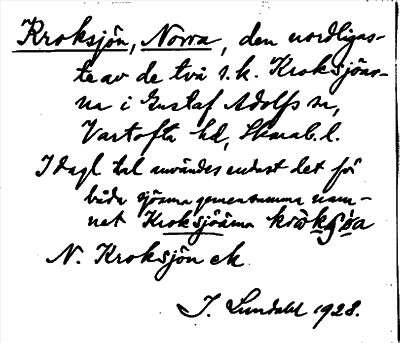 Kroksjön, Norra, den nordligas-
te av de två s.k. Kroksjöar-
na i Gustaf Adolfs sn,
Vartofta hd, Skarab. l.
I dagl tal användes endast det för
båda sjöarna gemensamma nam-
net Kroksjöarna
N. Kroksjön ek
J. Lundahl 1928.